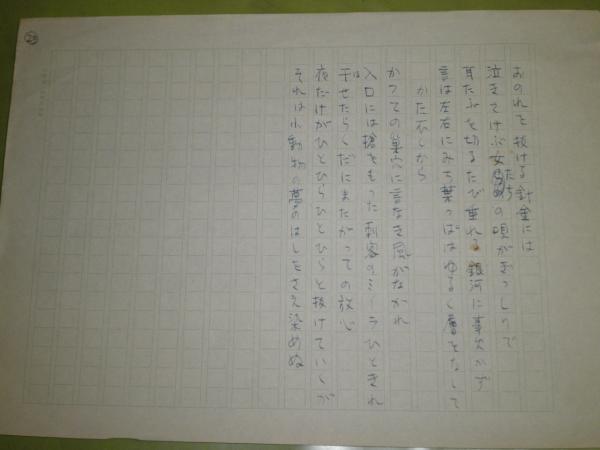 おのれを抜ける針金には
泣きさけぶ女たちの唄がぎっしりで
耳たぶを切るたび垂れる銀河に事欠かず
言は左右にみち葉っぱはゆるく層をなして
かたわらから
かつての巣穴に言なき風がながれ
入口には槍をもった刺客のミーラひときれ
干せたらくだにまたがっての放心
夜だけがひとひらひとひらと抜けていくが
それは小動物の夢のはしをさえ染めぬ